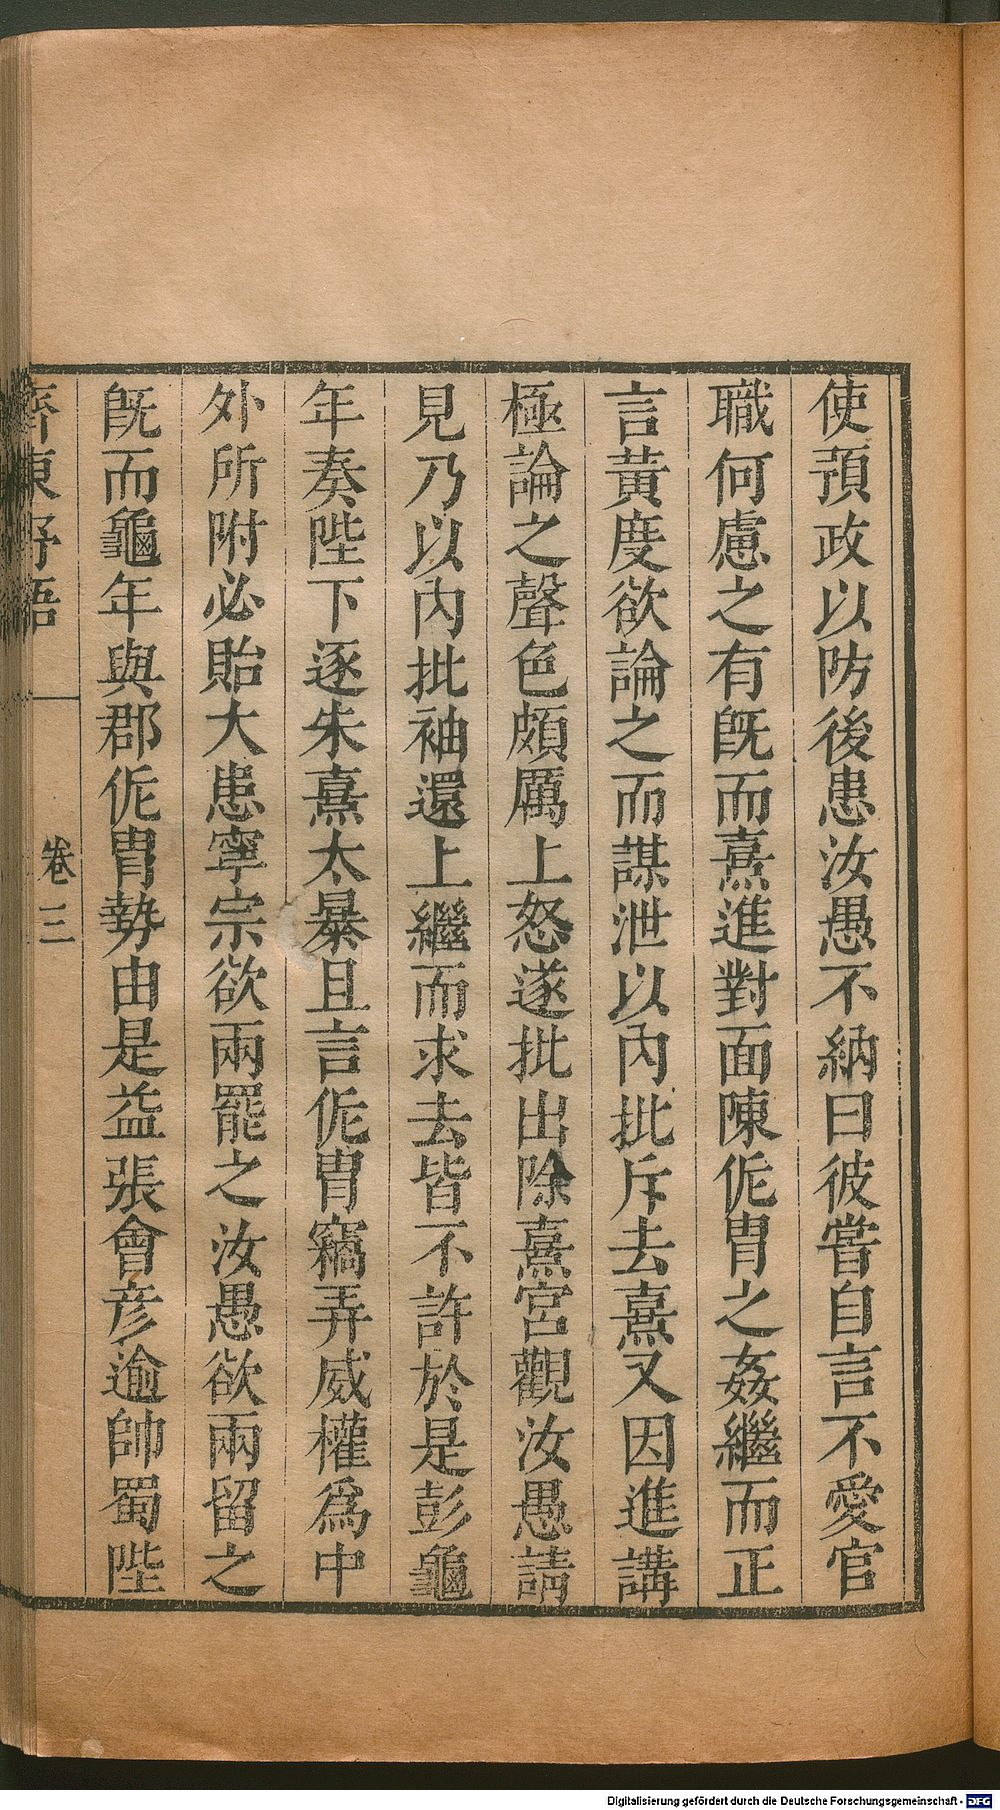 使預政以防後患汝愚不納曰彼嘗自言不愛官
職何慮之有旣而熹進對面陳侂冑之姦繼而正
言黃度欲論之而謀泄以內批斥去熹又因進講
極論之聲色頗厲上怒遂批出除熹宮觀汝愚請
見乃以內批袖還上繼而求去皆不許於是彭龜
年奏陛下逐朱熹太暴且言侂冑竊弄威權爲中
外所附必貽大患寧宗欲兩罷之汝愚欲兩留之
旣而龜年與郡侂冑勢由是益張會彥逾帥蜀陛
齊東野語
卷三
Digitalisierung gefördert durch die Deutsche Forschungsgemeinschaft - DFG